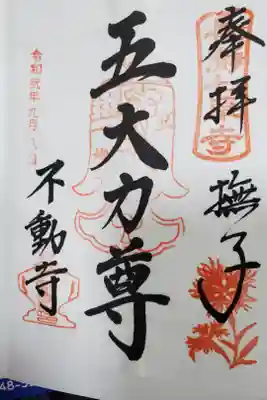 奉拝
撫子
五大力尊
不動寺
令和元年九月八日
48-5